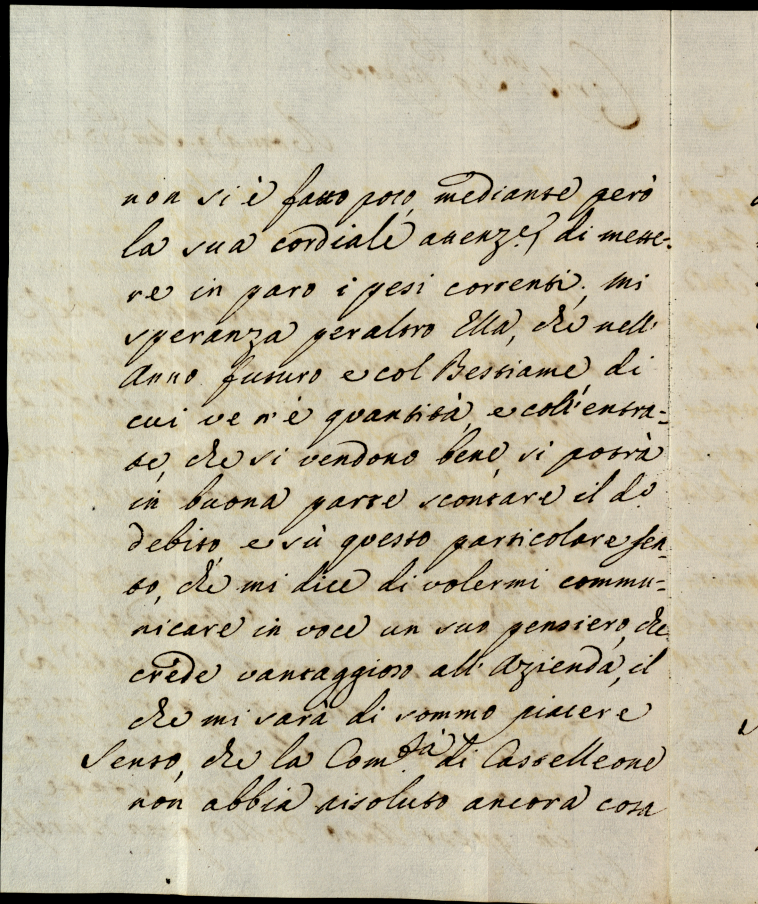 non si è fatto poco mediante però
la sua cordiale attenz.e, di mette-
re in paro i pesi correnti; mi
speranza peraltro Ella, che nell'
Anno futuro e col Bestiame, di
cui ve n'è quantità, e coll'entra-
te, che si vendono bene, si potrà
in buona parte scontare il d.o
debito, e sù questo particolare sen-
to, che mi dice di volermi commu-
nicare in voce un suo pensiero, che
crede vantaggioso all'Azienda, il
che mi sarà di sommo piacere
Sento, che la Com.tà di Castelleone
non abbia risoluto ancora cosa